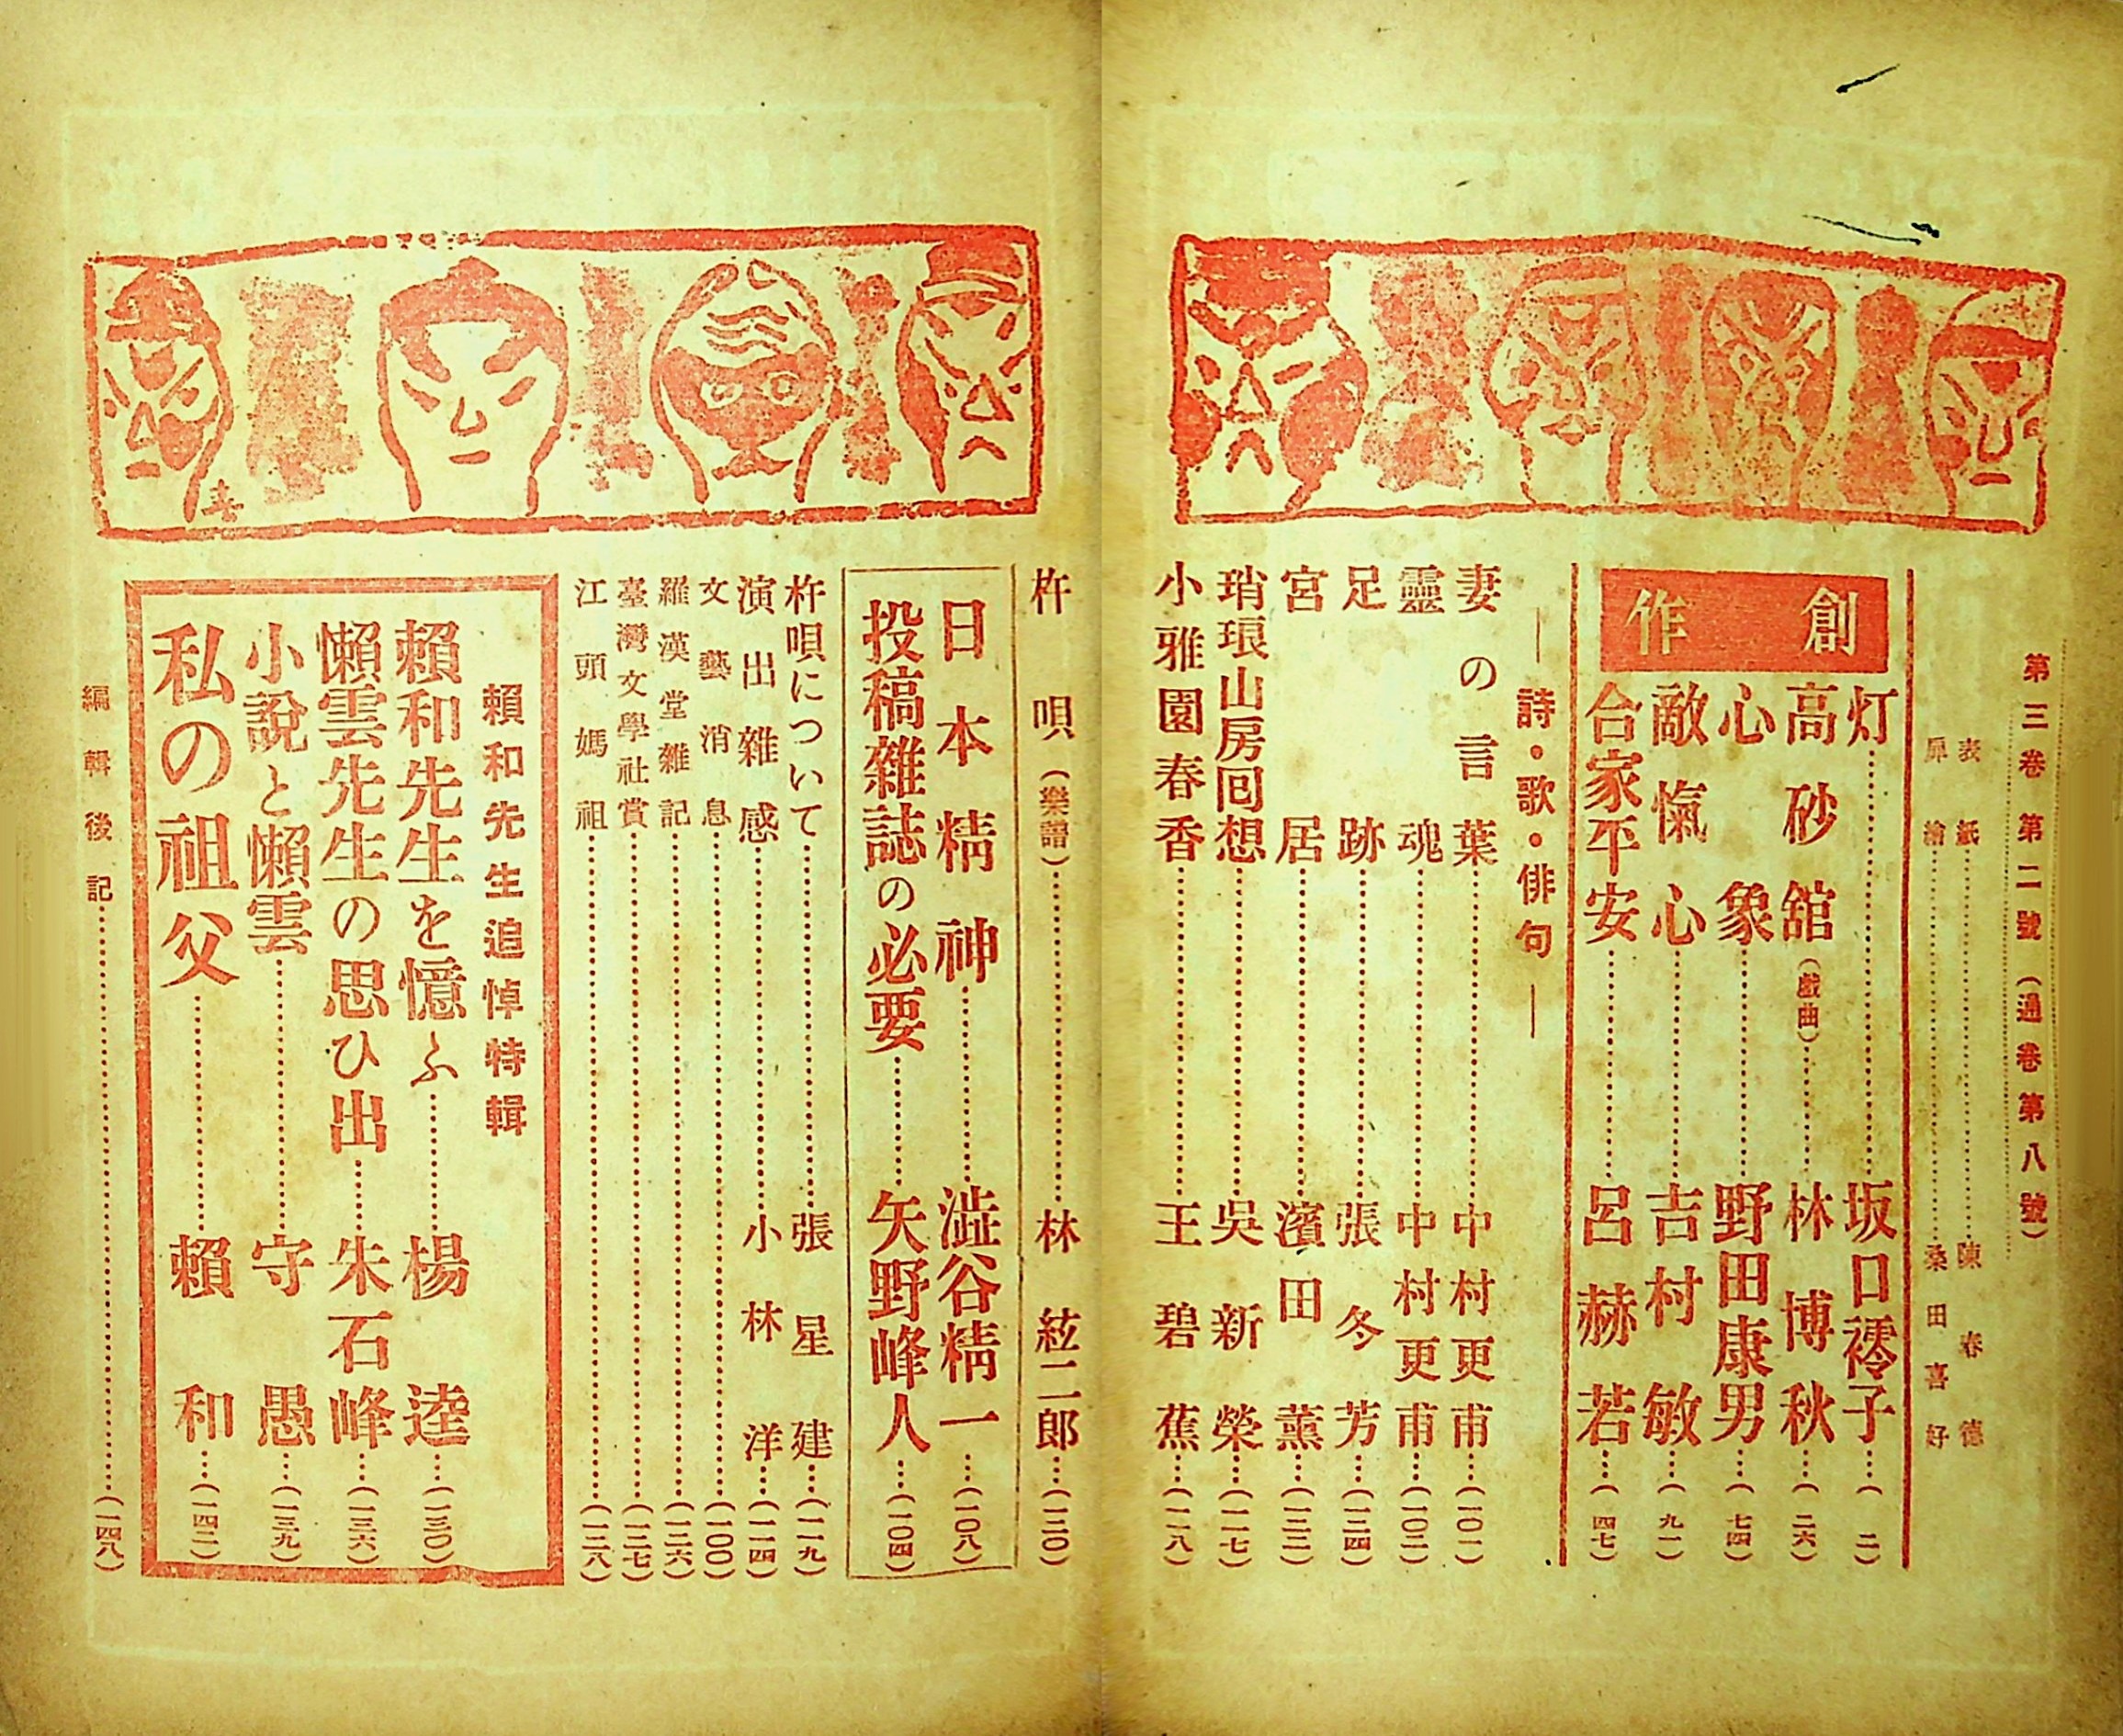 第三卷第二號（通卷第八號）
表紙……陳春德
扉繪……桑田喜好
創作
灯……坂口䙥子……（二）
高砂舘（戲曲）……林博秋……（二六）
心象……野田康男……（七四）
敵愾心……吉村敏……（九一）
合家平安……呂赫若……（四七）
—詩・歌・俳句—
妻の言葉……中村更甫……（一〇一）
靈魂……中村更甫……（一〇二）
足跡……張冬芳……（一二四）
宮居……濱田薰……（一二二）
琑琅山房囘想……吳新榮……（一一七）
小雅園春香……王碧蕉……（一一八）
杵唄（樂譜）……林絃二郎……（一二〇）
日本精神……澁谷精一……（一〇八）
投稿雜誌の必要……矢野峰人……（一〇四）
杵唄について……張星建……（一一九）
演出雜感……小林洋……（一一四）
文藝消息……（一〇〇）
羅漢堂雜記……（一二六）
臺灣文學社賞……（一二七）
江頭媽祖……（一二八）
賴和先生追悼特輯
賴和先生を憶ふ……楊逵……（一三〇）
懶雲先生の思ひ出……朱石峰……（一三六）
小說と懶雲……守愚……（一三九）
私の祖父……賴和……（一四二）
編輯後記……（一四八）